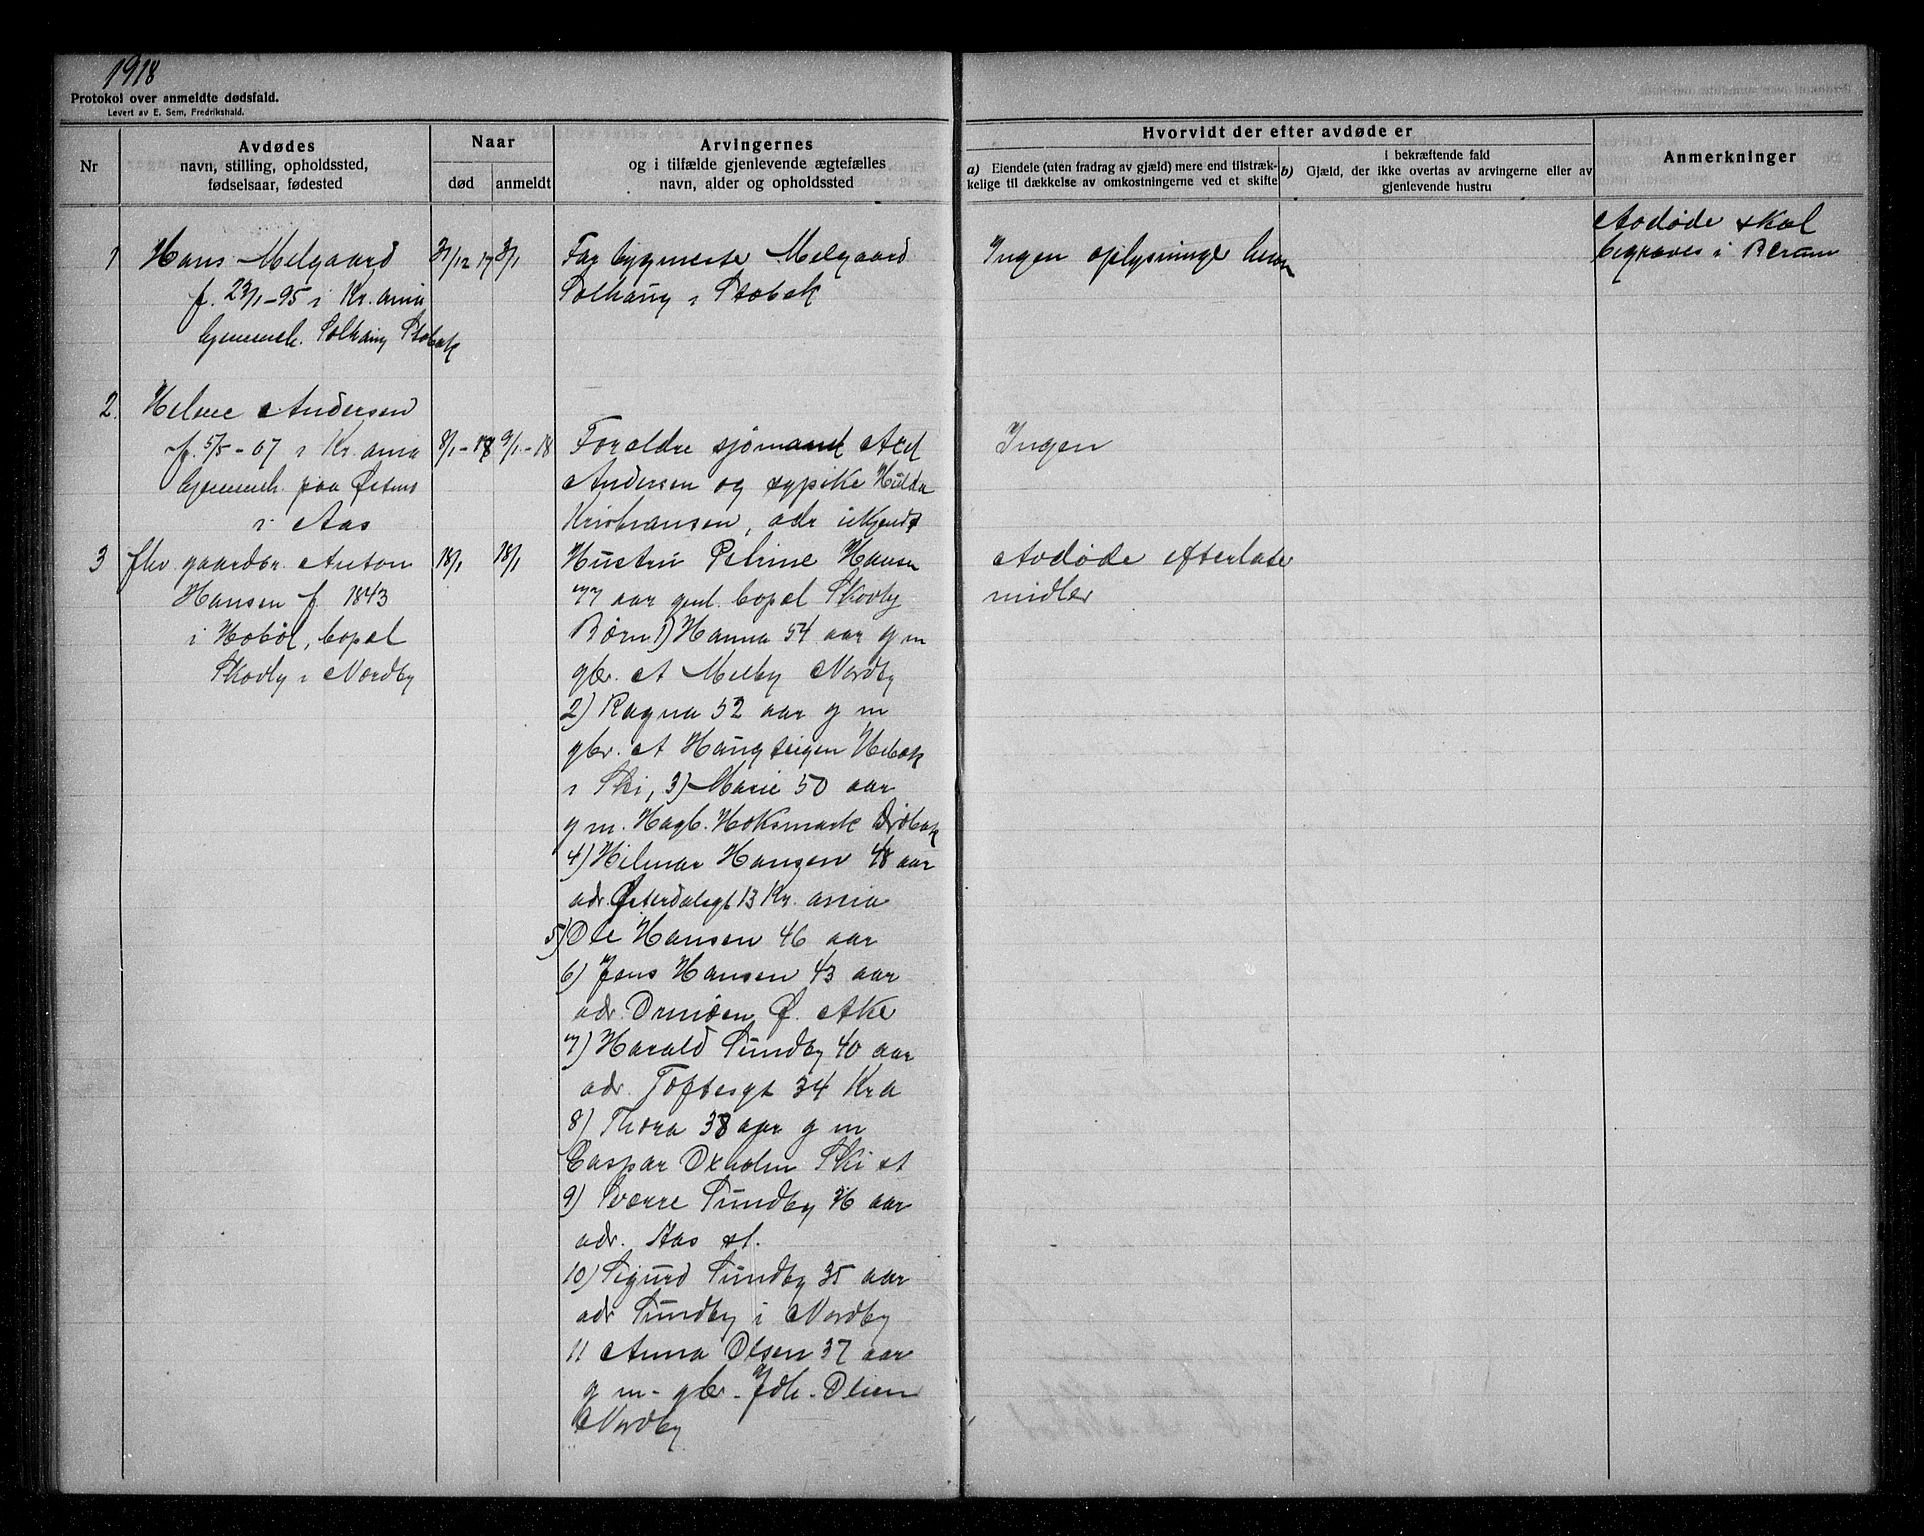 1918
Protokol over anmeldte dødsfald.
Levert av E. Sem, Fredrikshald.
Nr
Avdødes
navn, stilling, opholdssted,
fødselsaar, fødested
Naar
død
anmeldt
Arvingernes
og i tilfælde gjenlevende ægtefælles
navn, alder og opholdssted
Hvorvidt der efter avdøde er
a) Eiendele (uten fradrag av gjæld) mere end tilstræk-
kelige til dækkelse av omkostningerne ved et skifte
i bekræftende fald
b) Gjæld, der ikke overtas av arvingerne eller av
gjenlevende hustru
Anmerkninger
1 Hans Melgaard
f. 29/1-95 i Kr.ania
hjemmeh. Solhaug
31/12 17
3/1
Far bygmester Melgaard
Solhaug i
Ingen oplysninge herom
Avdøde skal
begraves i Bærum
2. Andersen
f. 5/5-07 i Kr.ania
hjemmeh. paa
i Aas
8/1-18
9/1-18
Foreldre sjømand
Andersen og sypike Hulda
Kristiansen, adr ukjendt
Ingen
3 fhv gaardbr. Anton
Hansen f. 1843
i Hobøl, bopæl
Skovby i Nordby
18/1
18/1
Hustru Hansen
77 aar gml. bopæl Skovby
Børn 1) Hanna 54 aar g m
gbr. A Melby Nordby
2) Ragna 52 aar g m
gbr. A Haugteigen
i Ski, 3) Marie 50 aar
g m. Hagb. Hoksmark Drøbak
4) Hilmar Hansen 48 aar
adr. Østerdalsgt 13 Kr.ania
5) Ole Hansen 46 aar
6) Jens Hansen 43 aar
adr. Ormøen Ø. Aker
7) Harald Sundby 40 aar
adr. Toftesgt 34 Kra
8) Thora 38 aar g m
Caspar Oxholm Ski st
9) Sverre Sundby 36 aar
adr. Aas st.
10) Sigurd Sundby 35 aar
adr Sundby i Nordby
11 Anna Olsen 37 aar
g m - gbr - Joh. Olsen
Nordby
Avdøde efterlater
midler